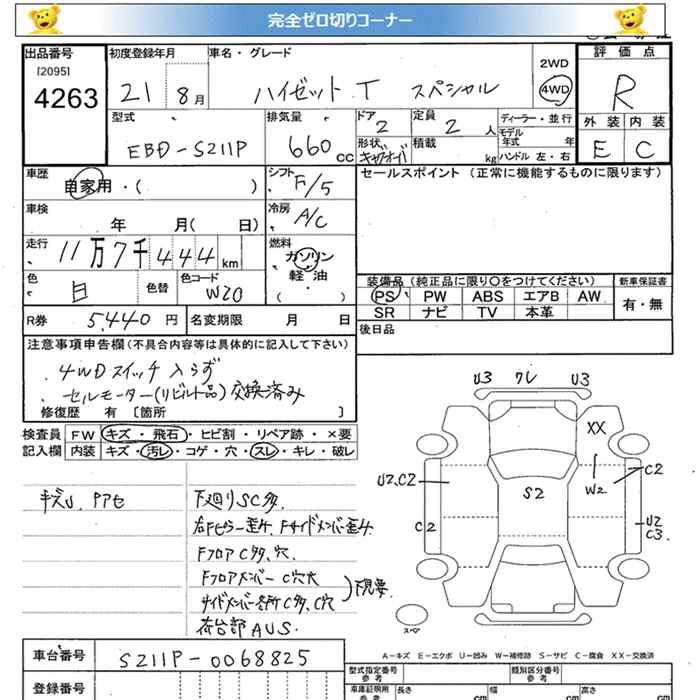 完全ゼロ切りコーナー
出品番号 初度登録年月 車名・グレード 評価点
[2095]
4263
21 8月 ハイゼット T スペシャル 2WD 4WD R
型式 排気量 ドア 定員 ディーラー・並行 外装 内装
EBD-S211P 660cc 2 2人 モデル年式 年 E C
形状 積載 kg ハンドル 左・右
車歴 シフト セールスポイント (正常に機能するものに限ります)
自家用・( ) F/5
車検 冷房
年 月( 日) A/C
走行 燃料
11万7千444km ガソリン
軽油
( ・ )
色 色替 色コード 装備品 (純正品に限り○をつけてください) 新車保証書
白 W20 PS PW ABS エアB AW 有・無
SR ナビ TV 本革
R券 5,440円 名変期限 月 日 後日品
注意事項申告欄(不具合内容等は具体的に記入して下さい)
・4WDスイッチ入らず
・セルモーター(リビルト品)交換済み
修復歴 有 [箇所 ]
検査員 FW キズ・飛石・ヒビ割・リペア跡・×要
記入欄 内装 キズ・汚レ・コゲ・穴・スレ・キレ・破レ
キズU. Pアセ
下廻りSC多.
右Fピラー歪ミ. Fサイドメンバー歪ミ.
FフロアC多、穴.
Fフロアメンバー C穴大
サイドメンバー各所C多、C穴
下見要.
荷台部AUS.
U3 ワレ U3
XX
U2.C2 C2
W2
S2
C2 U2
C3
スペア
A-キズ E-エクボ U-凹み W-補修跡 S-サビ C-腐食 XX-交換済
車台番号 S211P-0068825
型式指定番号 参考 類別区分番号 参考
登録番号 車庫証明用 参考 長さ cm 幅 cm 高さ cm